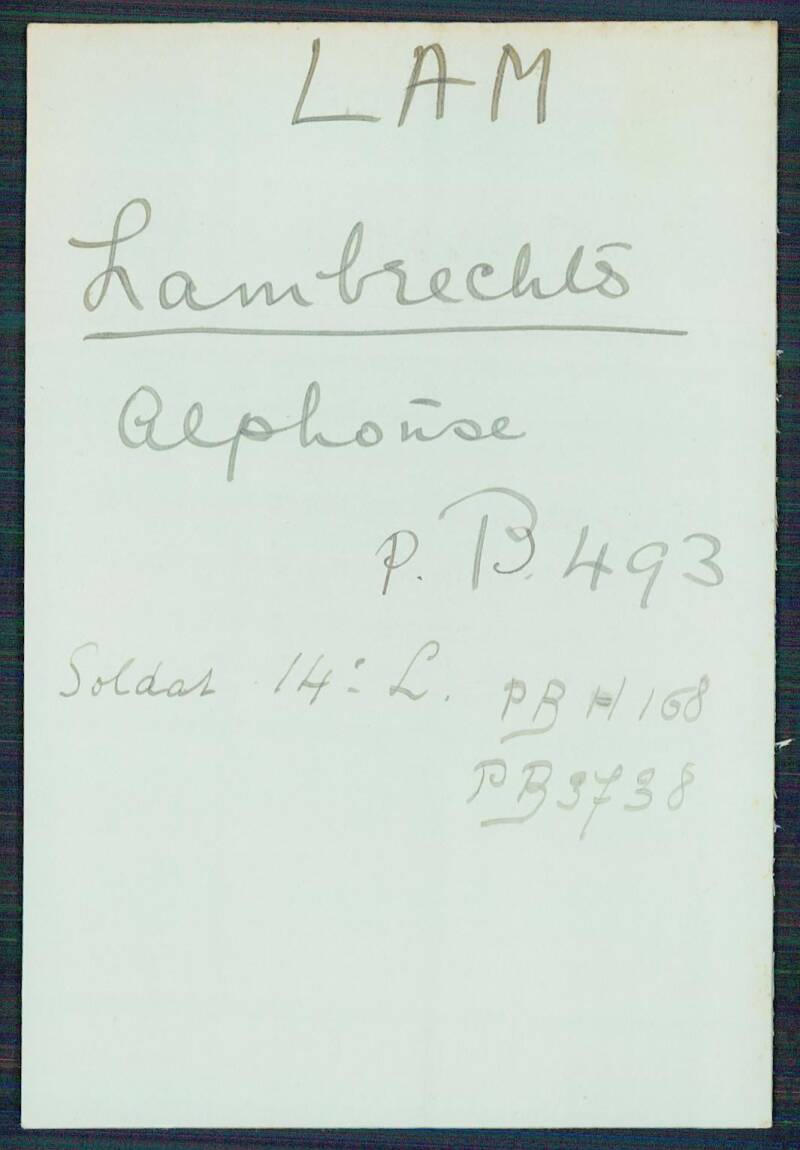 LAM
Lambrechts
Alphonse
P. B. 493
Soldat 14e L. PB H 168
PB 3738